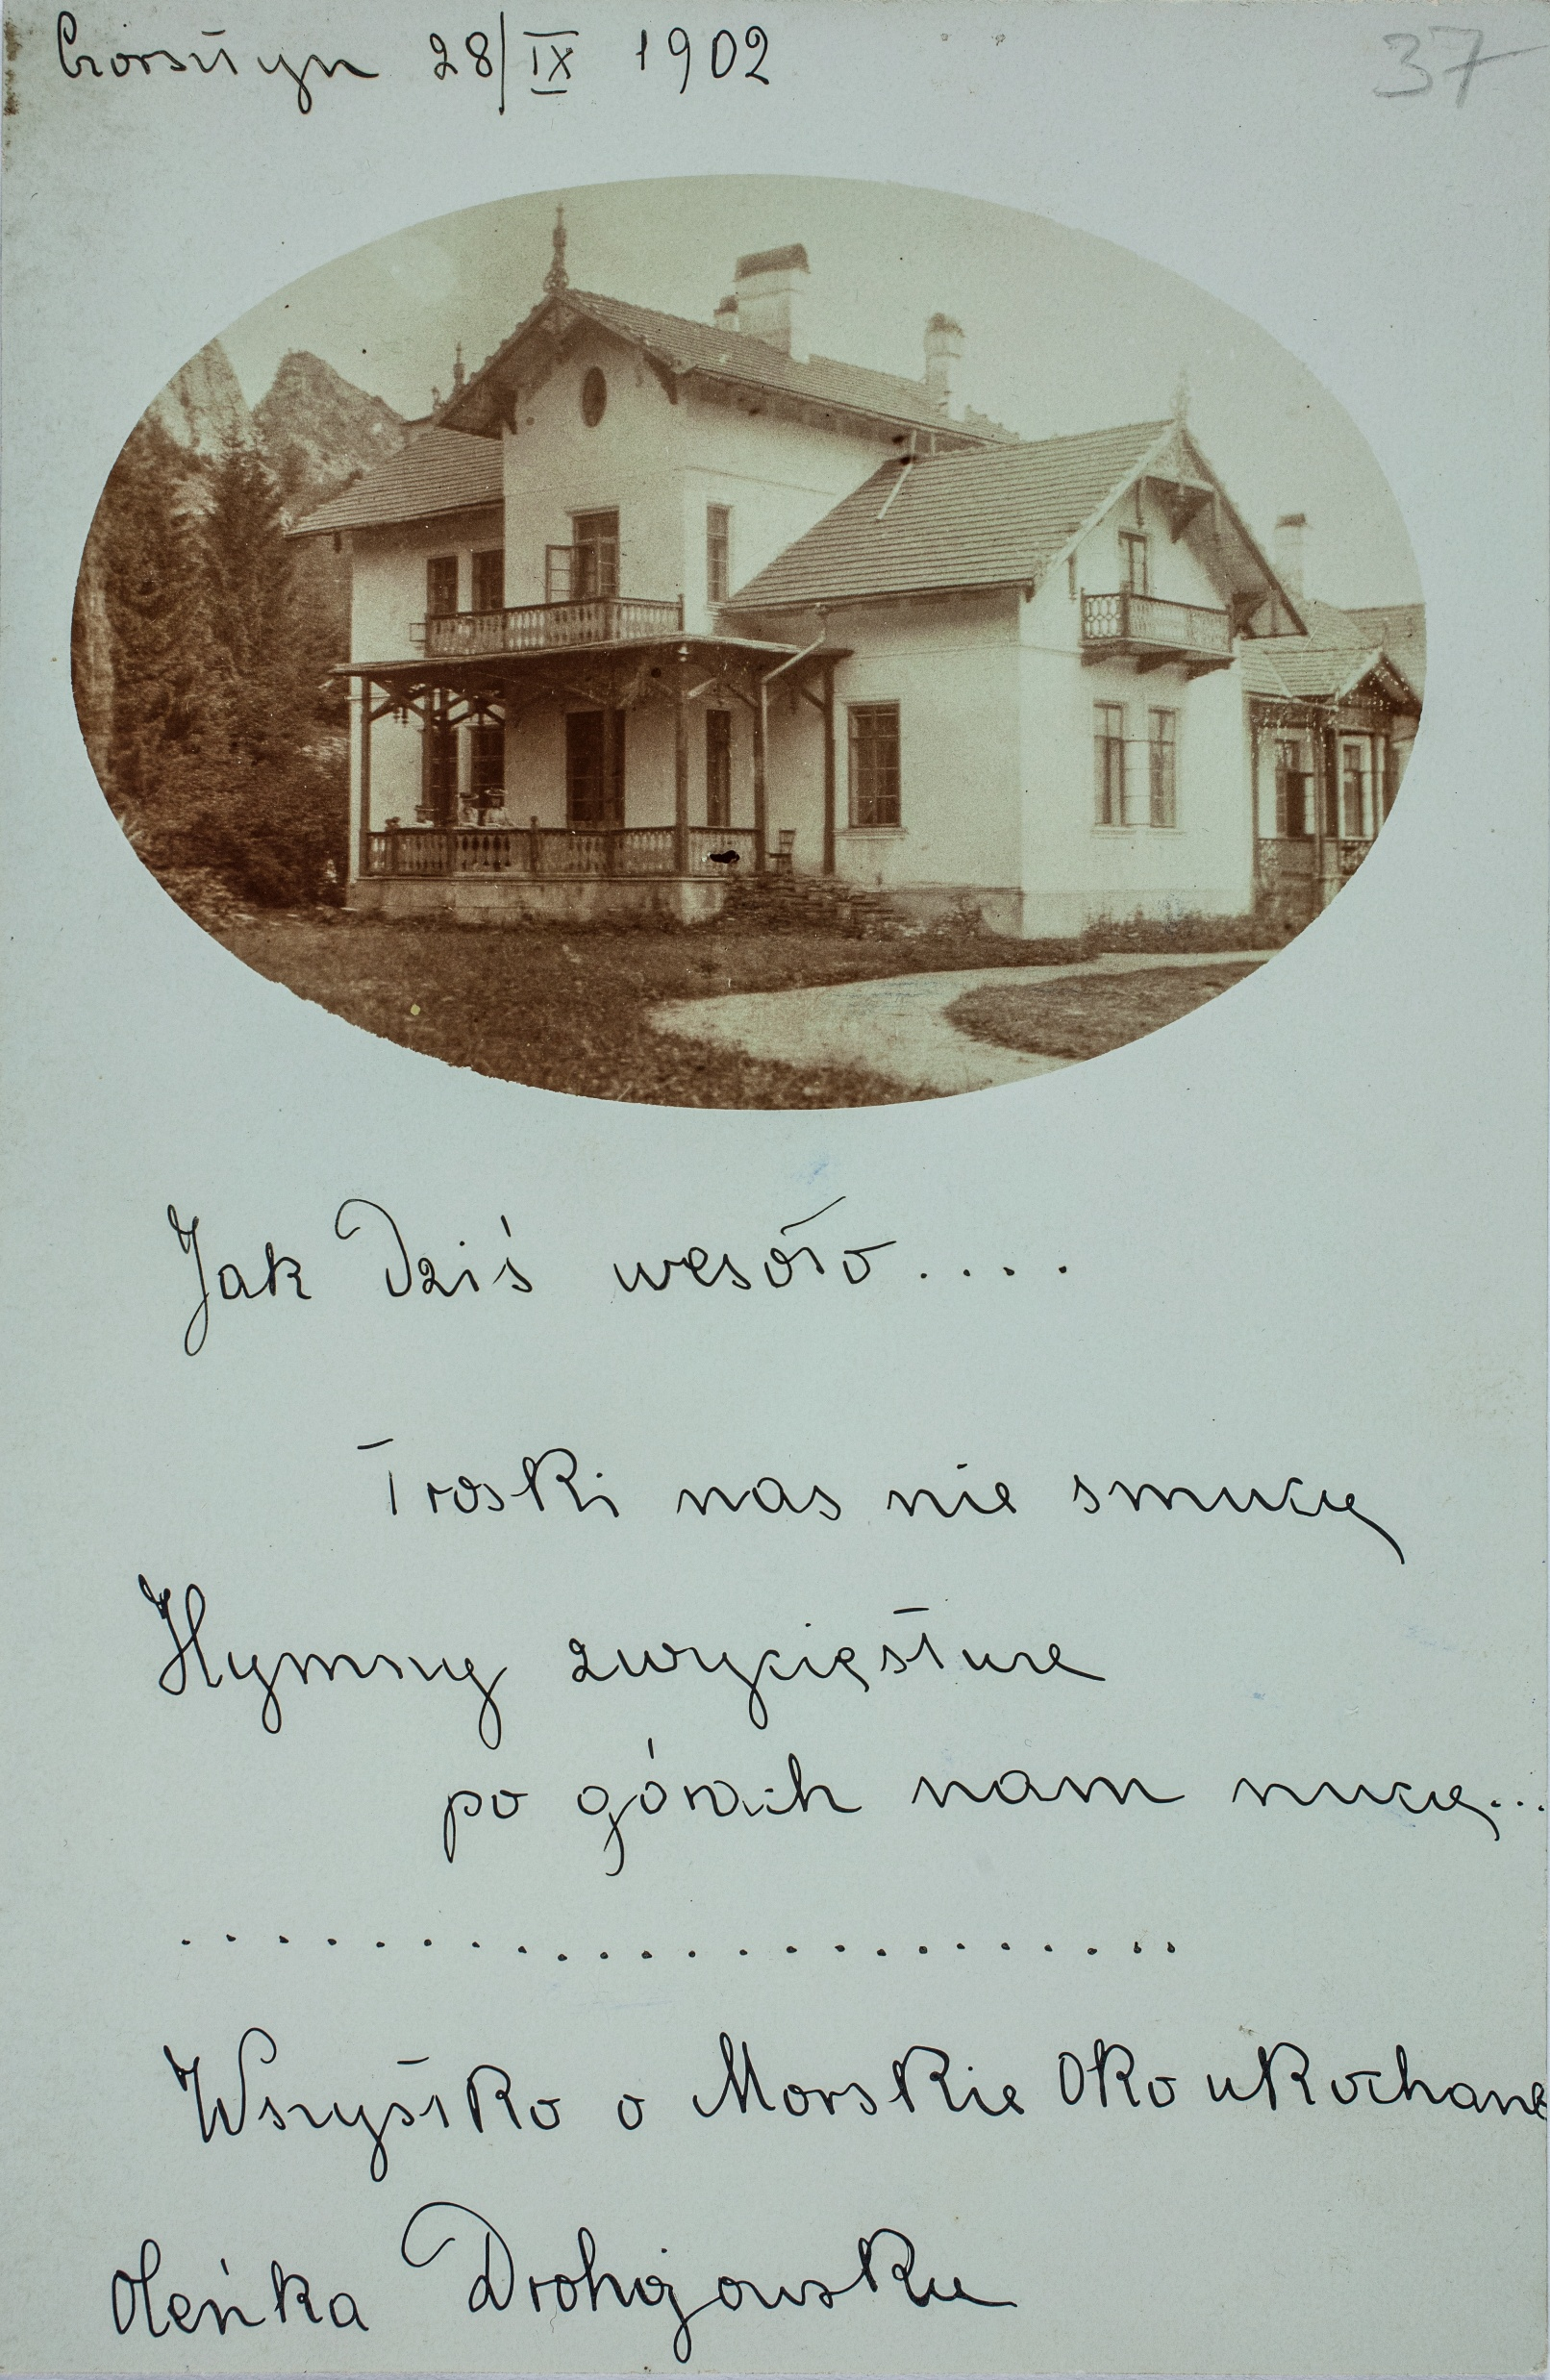 Czorsztyn 28/IX 1902
37
Jak Dziś wesoło....
Troski nas nie smucą
Hymny zwycięstwa
po górach nam nucą...
........................
Wszystko o Morskie Oko ukochane
Oleńka Drohojowska